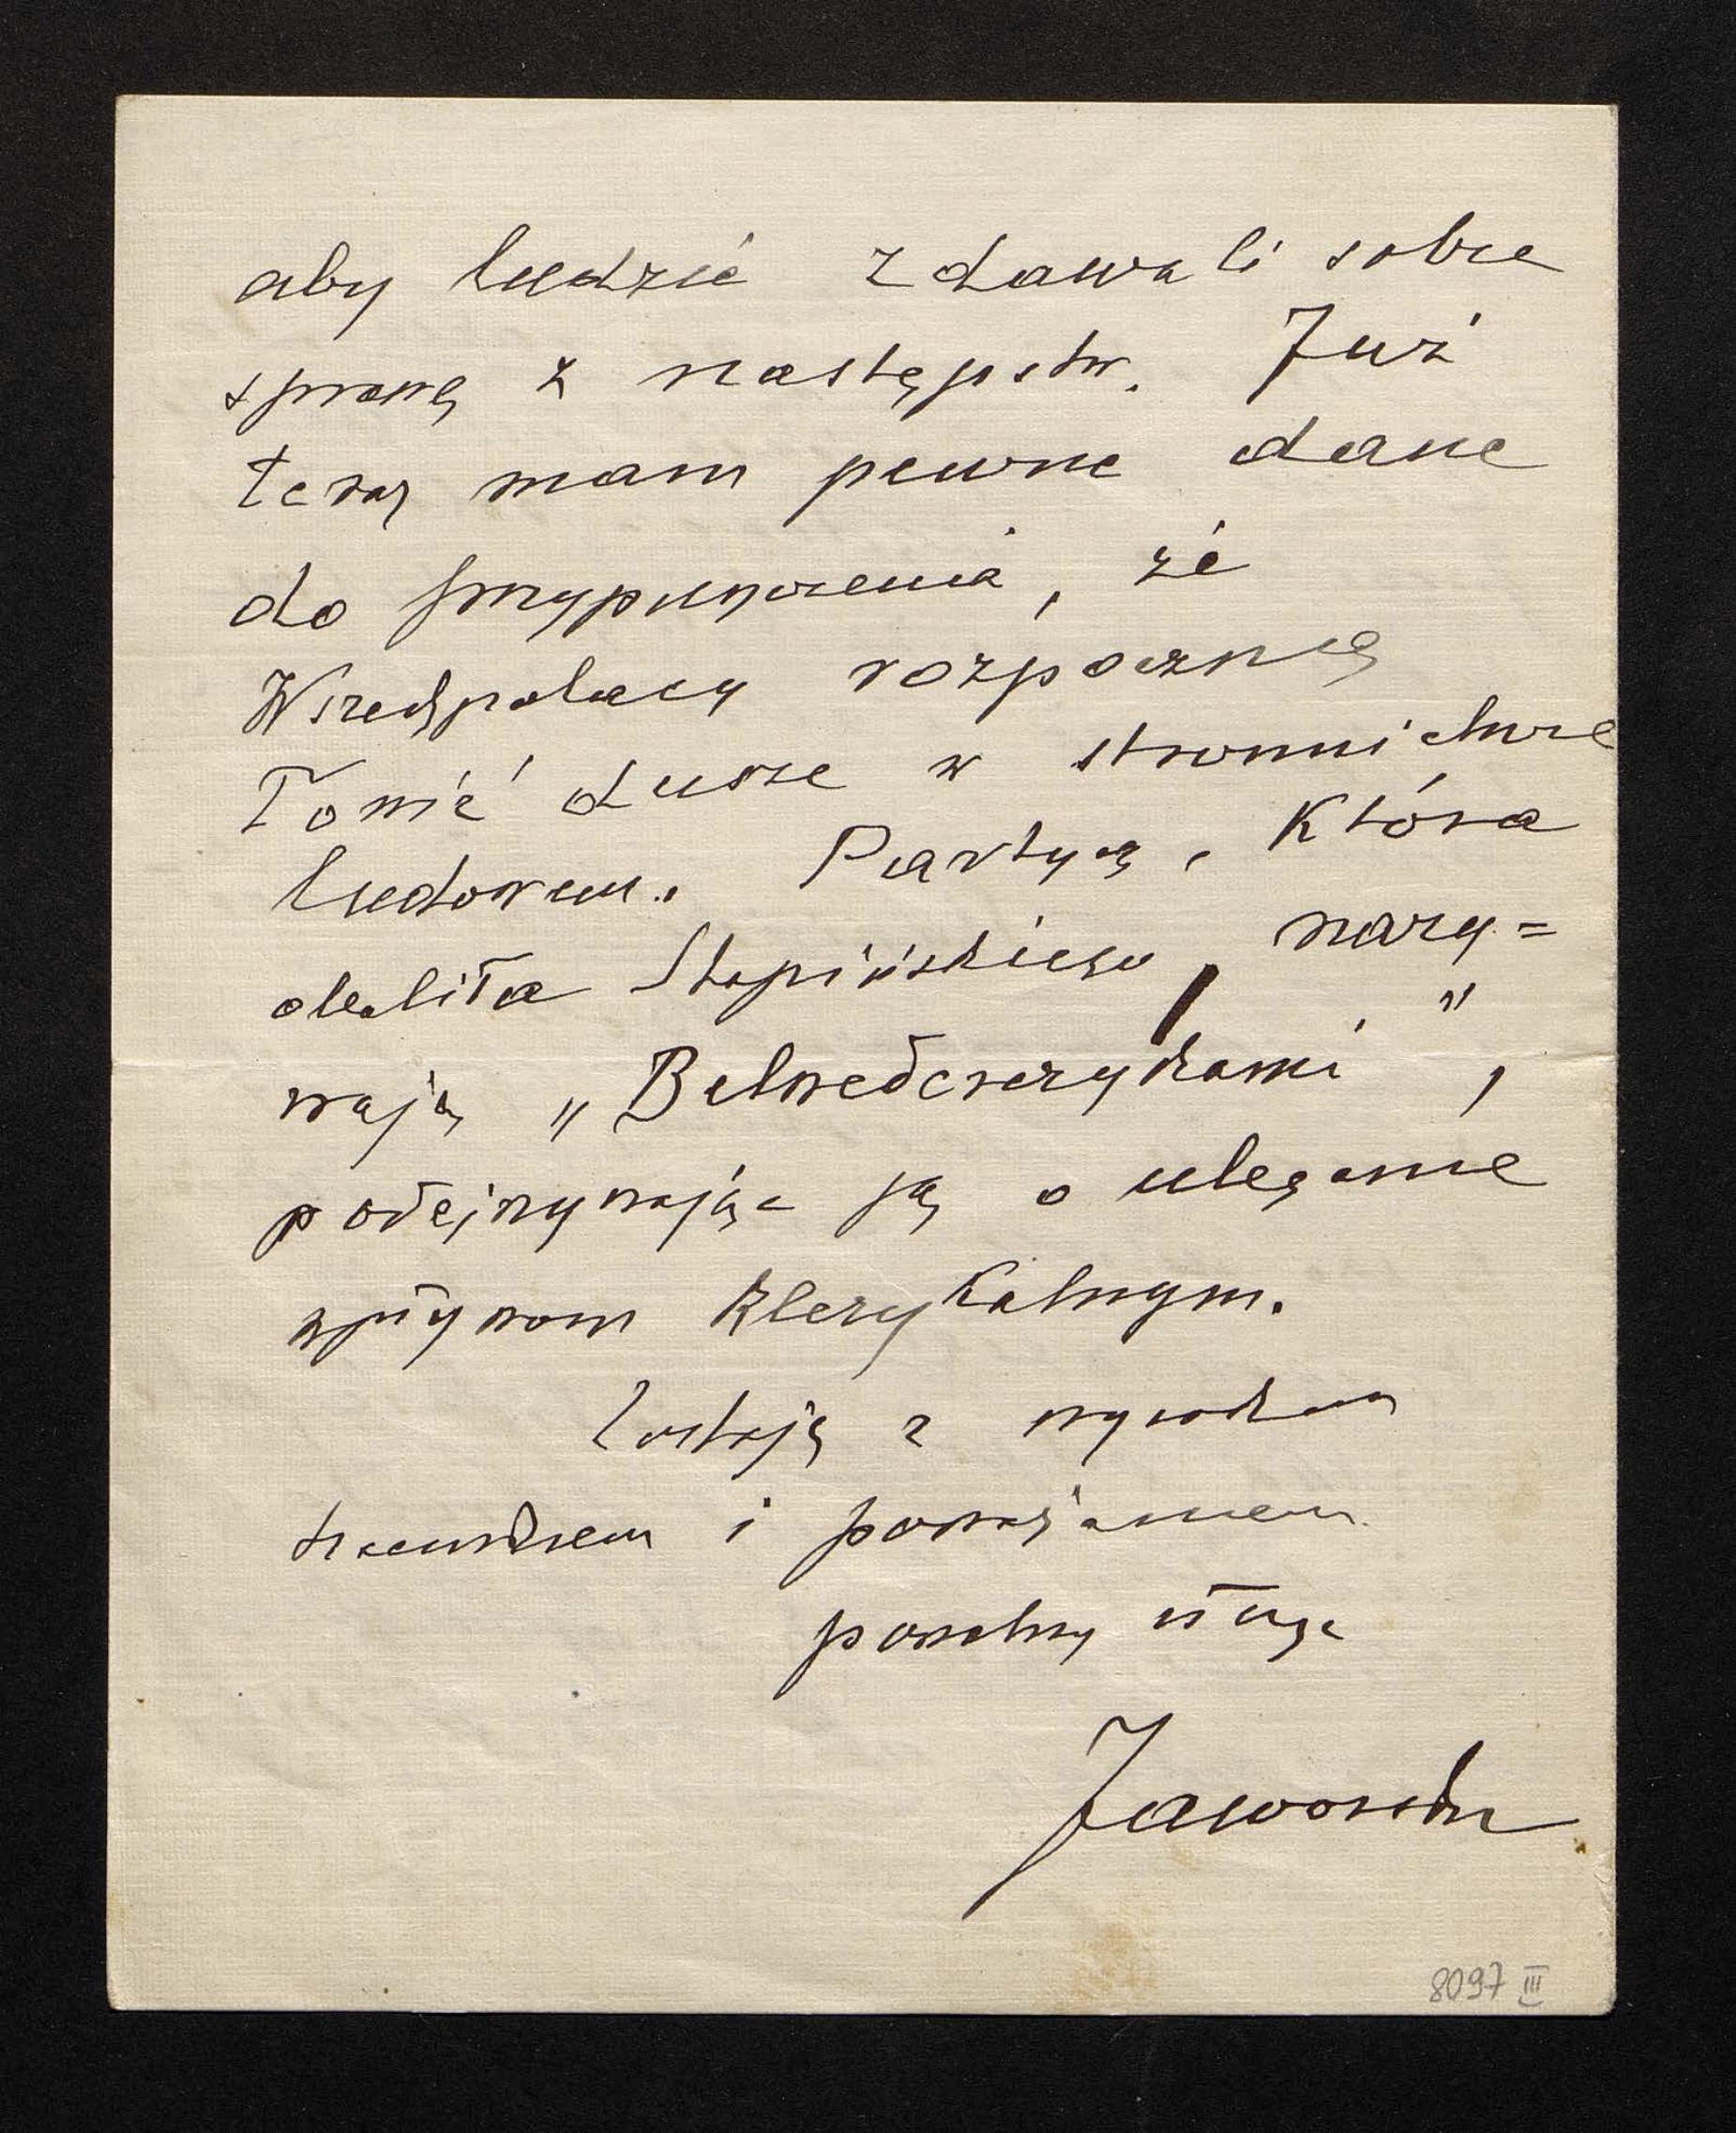 aby ludzie zdawali sobie
sprawę z następstw. Już
teraz mam pewne dane
do przypuszczenia, że
Wszechpolacy rozpoczną
łowić dusze w stronnictwie
ludowem. Partyą, która
obaliła Stapińskiego, nazy=
wają „Belwederczykami”,
podejrzywając ją o uleganie
wpływom klerykalnym.
Zostaję z wysokim
szacunkiem i poważaniem
powolny sługa
Jaworski
8097 III